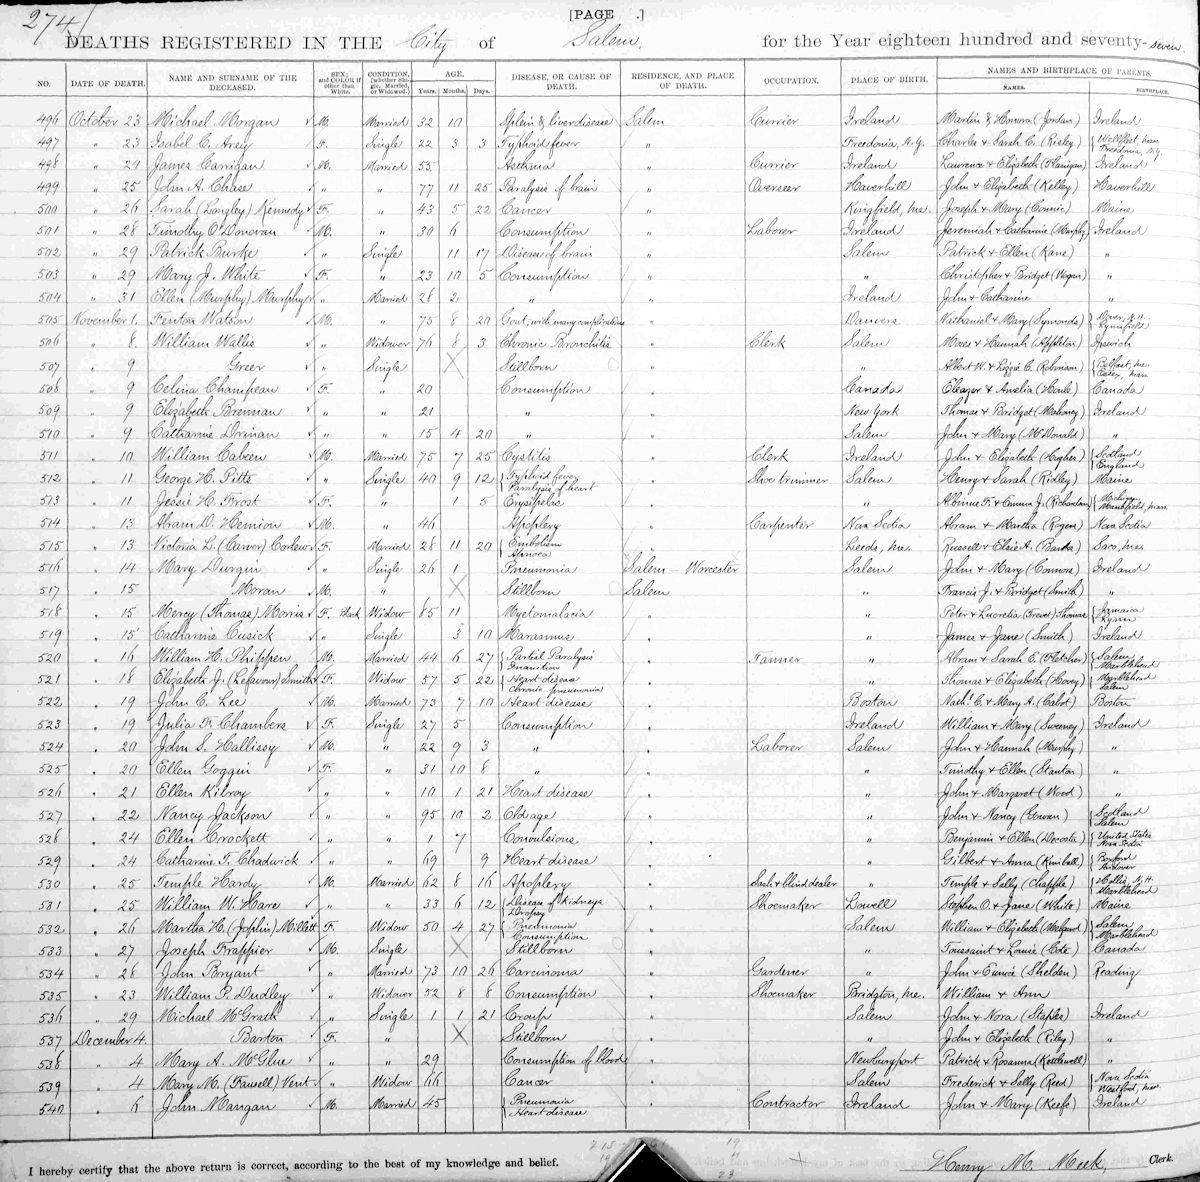 274
[PAGE .]
DEATHS REGISTERED IN THE City of Salem, for the Year eighteen hundred and seventy-seven.
NO. DATE OF DEATH. NAME AND SURNAME OF THE DECEASED. SEX; and COLOR if other than White. CONDITION, (whether Single, Married, or Widowed.) AGE. Years. Months. Days. DISEASE, OR CAUSE OF DEATH. RESIDENCE, AND PLACE OF DEATH. OCCUPATION. PLACE OF BIRTH. NAMES AND BIRTHPLACE OF PARENTS. NAMES. BIRTHPLACE.
496 October 23 Michael Morgan M. Married 32 10 Spleen & liver disease Salem Currier Ireland Martin & Honora (Jordan) Ireland
497 " 23 Isabel C. Arey F. Single 22 3 3 Typhoid fever " Freedonia, N.Y. Charles & Sarah C. (Risley) Wellfleet, Mass Freedonia, N.Y.
498 " 24 James Carrigan M. Married 55 Asthma " Currier Ireland Lawrence & Elizabeth (Flanigan) Ireland
499 " 25 John A. Chase " " 77 11 25 Paralysis of brain " Overseer Haverhill John & Elizabeth (Kelley) Haverhill
500 " 26 Sarah (Longley) Kennedy F. " 43 5 22 Cancer " Kingfield, Me. Joseph & Mary Maine
501 " 28 Timothy O'Donovan M. " 30 6 Consumption " Laborer Ireland Jeremiah & Catharine (Murphy) Ireland
502 " 29 Patrick Burke " Single 11 17 Disease of brain " Salem Patrick & Ellen (Kane) "
503 " 29 Mary J. White F. " 23 10 5 Consumption " " Christopher & Bridget (Hogan) "
504 " 31 Ellen (Murphy) Murphy " Married 28 2 " " Ireland John & Catharine "
505 November 1. Fenton Watson M. " 75 8 20 Gout, with many complications " Danvers Nathaniel & Mary (Symonds) Dover, N.H. Lynnfield
506 " 8 William Wallis " Widower 76 8 3 Chronic Bronchitis " Clerk Salem Moses & Hannah (Appleton) Ipswich
507 " 9 Greer " Single X Stillborn " " Albert W. & Lizzie C. (Robinson) Belfast, Me. Mass
508 " 9 Celina Champeau F. " 20 Consumption " Canada Eleazer & Amelia (Houle) Canada
509 " 9 Elizabeth Brennan " " 21 " " New York Thomas & Bridget (Mahoney) Ireland
510 " 9 Catharine Drinan " " 15 4 20 " " Salem John & Mary (McDonald) "
511 " 10 William Cabeen M. Married 75 7 25 Cystitis " Clerk Ireland John & Elizabeth (Hughes) Scotland England
512 " 11 George H. Pitts " Single 40 9 12 Typhoid fever Paralysis of heart " Shoe trimmer Salem Henry & Sarah (Ridley) Maine
513 " 11 Jessie H. Frost F. " 1 5 Erysipelas " " Albinus F. & Emma J. (Richardson) Michigan Mansfield, Mass
514 " 13 Abram D. Hemion M. " 46 Apoplexy " Carpenter Nova Scotia Abram & Martha (Rogers) Nova Scotia
515 " 13 Victoria L. (Carver) Corlew F. Married 28 11 20 Embolism Apnoea " Leeds, Me. Russell & Elsie A. Saco, Me.
516 " 14 Mary Durgin " Single 26 1 Pneumonia Salem - Worcester Salem John & Mary (Connors) Ireland
517 " 15 Moran M. " X Stillborn Salem " Francis J. & Bridget (Smith) "
518 " 15 Mercy (Thomas) Morris F. Black Widow 85 11 Myetomalacia " " Peter & Lucretia Thomas Jamaica Lynn
519 " 15 Catharine Cusick " Single 3 10 Marasmus " " James & Jane (Smith) Ireland
520 " 16 William H. Phippen M. Married 44 6 27 Partial Paralysis Inanition " Tanner " Abram & Sarah E. (Fletcher) Salem Marblehead
521 " 18 Elizabeth J. (Lefavour) Smith F. Widow 57 5 22 Heart disease Chronic pneumonia " " Thomas & Elizabeth (Hovey) Marblehead Salem
522 " 19 John C. Lee M. Married 73 7 10 Heart disease " Boston Nathl. C. & Mary A. (Cabot) Boston
523 " 19 Julia F. Chambers F. Single 27 5 Consumption " Ireland William & Mary (Sweeney) Ireland
524 " 20 John S. Hallissy M. " 22 9 3 " " Laborer Salem John & Hannah (Murphy) "
525 " 20 Ellen Goggin F. " 31 10 8 " " " Timothy & Ellen (Stanton) "
526 " 21 Ellen Kilroy " " 10 1 21 Heart disease " " John & Margaret (Wood) "
527 " 22 Nancy Jackson " " 95 10 2 Old age " " John & Nancy (Gowan) Scotland Salem
528 " 24 Ellen Crockett " " 1 7 Convulsions " " Benjamin & Ellen (Decosta) United States Nova Scotia
529 " 24 Catharine T. Chadwick " " 69 9 Heart disease " " Gilbert & Anna (Kimball) Boxford Andover
530 " 25 Temple Hardy M. Married 62 8 16 Apoplexy " Sash & blind dealer " Temple & Sally (Chapple) Hollis, N.H. Marblehead
531 " 25 William W. Hare " " 33 6 12 Disease of kidneys Dropsy " Shoemaker Lowell Stephen O. & Jane (White) Maine
532 " 26 Martha H. (Joplin) Millett F. Widow 50 4 27 Pneumonia Consumption " Salem William & Elizabeth Salem Marblehead
533 " 27 Joseph Frappier M. Single X Stillborn " " Toussaint & Louise (Cote) Canada
534 " 28 John Bryant " Married 73 10 26 Carcinoma " Gardener " John & Eunice (Shelden) Reading
535 " 23 William P. Dudley " Widower 52 8 8 Consumption " Shoemaker Bridgton, Me. William & Ann
536 " 29 Michael McGrath " Single 1 1 21 Croup " Salem John & Nora (Staples) Ireland
537 December 4. Barton F. " X Stillborn " " John & Elizabeth (Riley) "
538 " 4 Mary A. McGlue " " 29 Consumption of blood " Newburyport Patrick & Rosanna (Kettlewell) "
539 " 4 Mary M. (Fausell) Vent " Widow 66 Cancer " Salem Frederick & Sally (Reed) Nova Scotia Westford, Mass.
540 " 6 John Mangan M. Married 45 Pneumonia Heart disease " Contractor Ireland John & Mary (Keefe) Ireland
I hereby certify that the above return is correct, according to the best of my knowledge and belief. Henry M. Meek, Clerk.